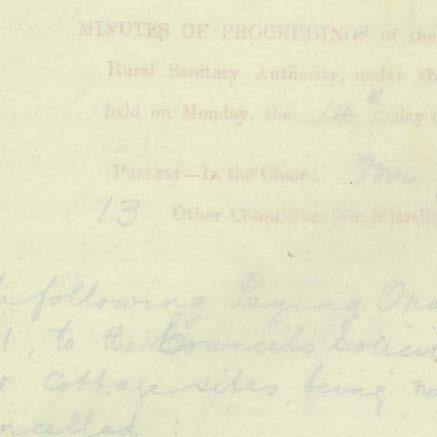 MINUTES OF PROCEEDINGS of the
Rural Sanitary Authority, under th
held on Monday, the 14th day o
PRESENT—In the Chair: Mr
13 Other Councillors
following Paying Ord
1, to the Councils Solicit
r Cottage sites, being no
ncelled